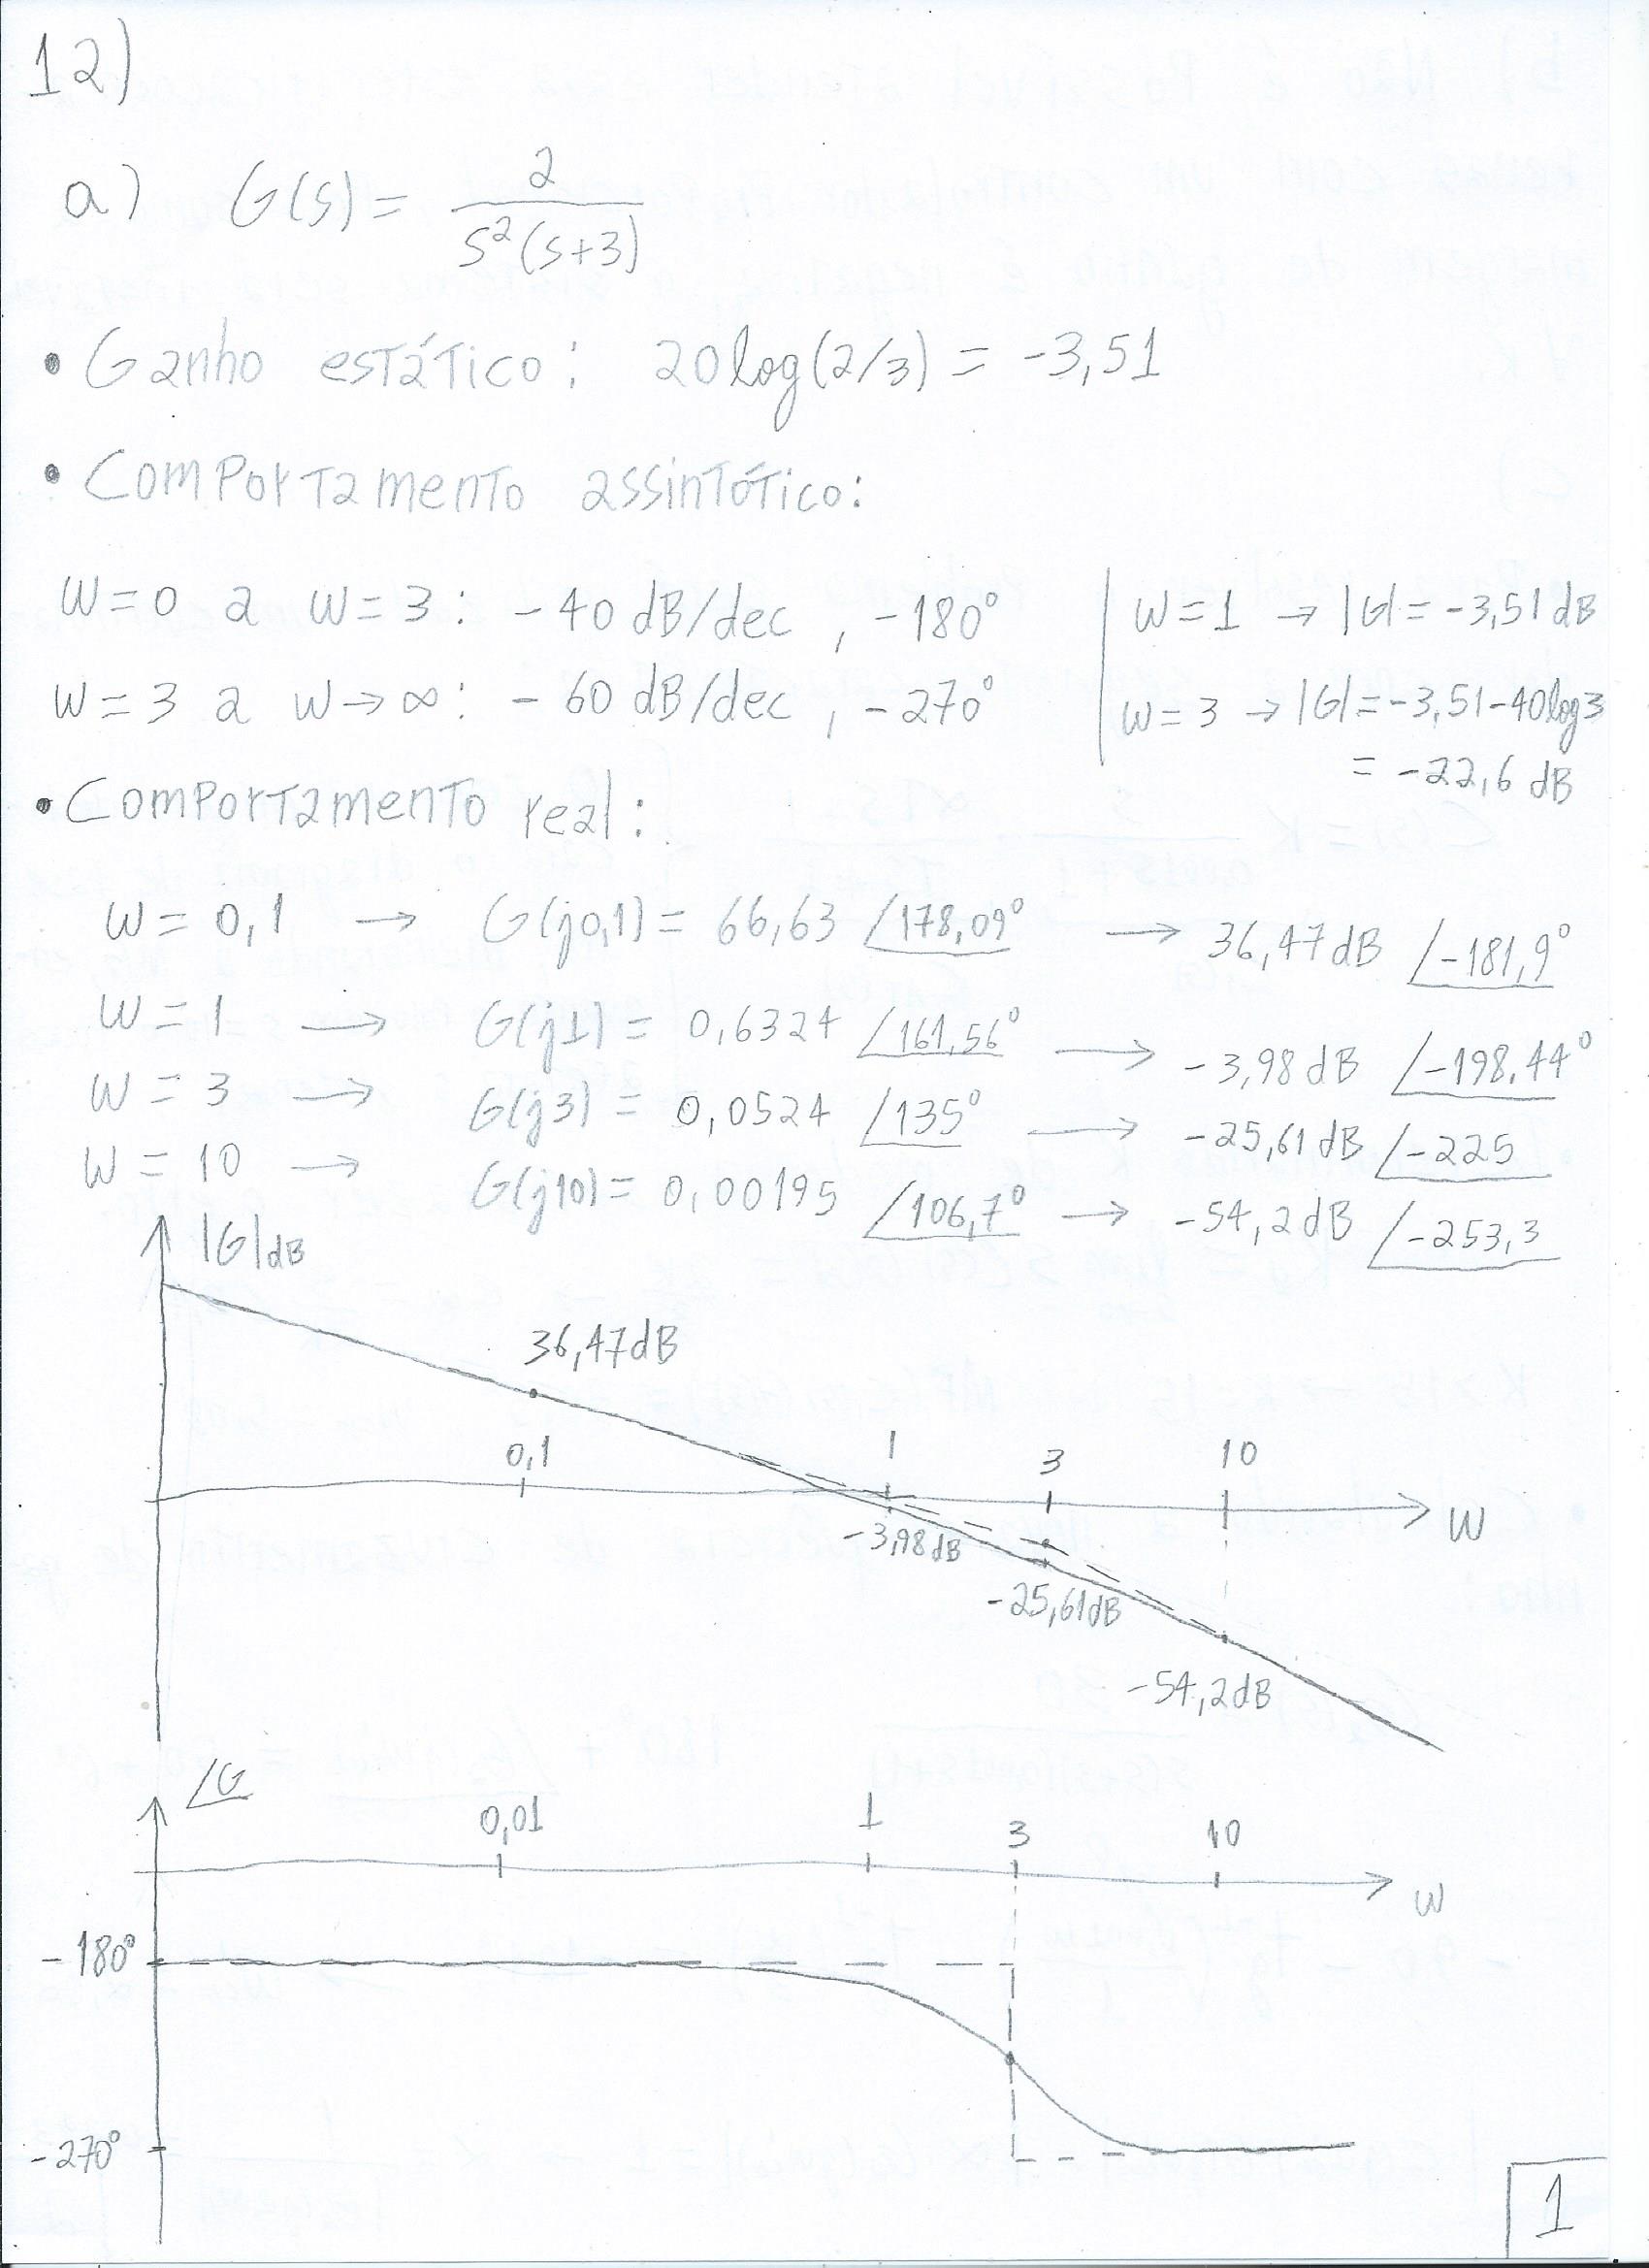 12)
a) G(s) = 2 / s²(s+3)
• Ganho estático: 20log(2/3) = -3,51
• Comportamento assintótico:
W=0 a W=3: -40 dB/dec, -180°
W=3 a W→∞: -60 dB/dec, -270°
W=1 → |G|=-3,51 dB
W=3 → |G|=-3,51-40log3
= -22,6 dB
• Comportamento real:
W = 0,1 → G(j0,1) = 66,63 /178,09° → 36,47dB /-181,9°
W = 1 → G(j1) = 0,6324 /161,56° → -3,98 dB /-198,44°
W = 3 → G(j3) = 0,0524 /135° → -25,61 dB /-225
W = 10 → G(j10) = 0,00195 /106,7° → -54,2 dB /-253,3
|G|dB
36,47dB
0,1 1 3 10
W
-3,98dB
-25,61dB
-54,2dB
/G
0,01 1 3 10
W
-180°
-270°
1